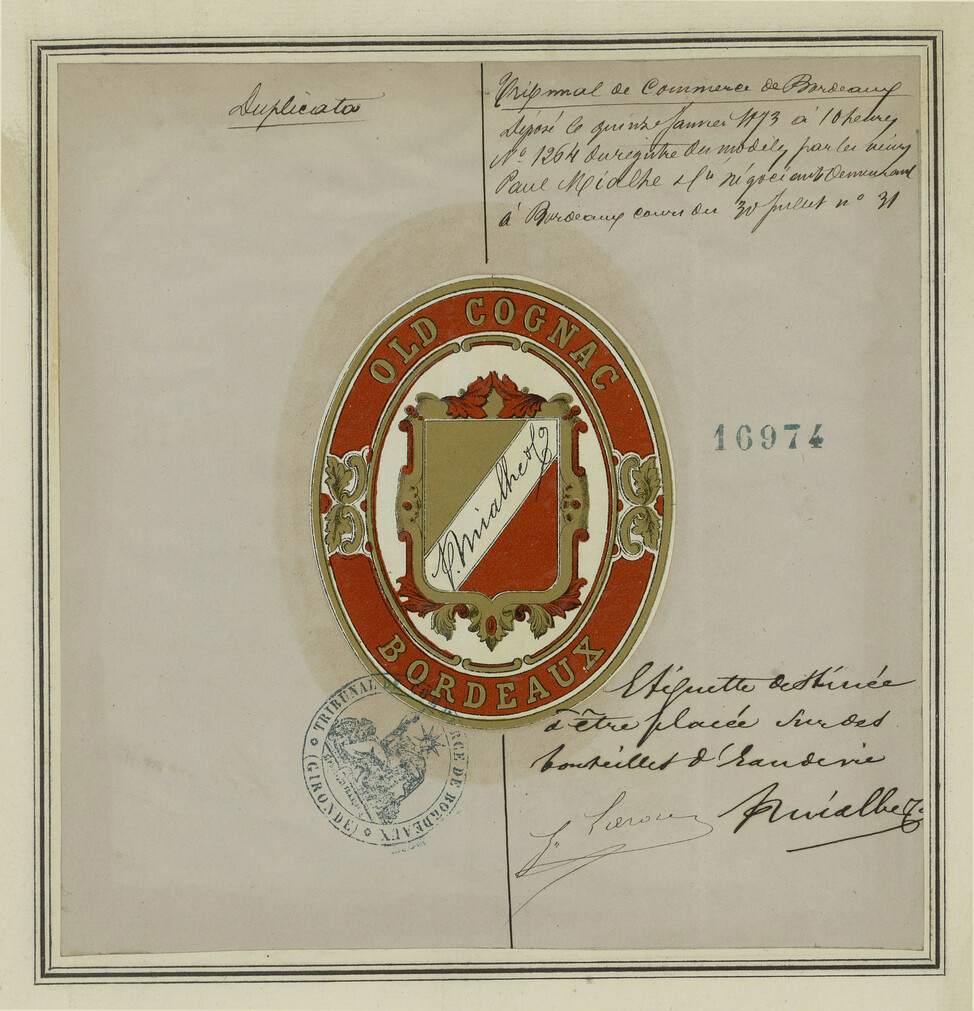 Duplicata
Tribunal de Commerce de Bordeaux
Déposé le quinze Janvier 1873 à 10 heures
N° 1264 du registre des modèles par les sieurs
Paul Mialhe & Cie négociants demeurant
à Bordeaux cours du 30 Juillet n° 31
OLD COGNAC
P. Mialhe & Co
BORDEAUX
16974
Etiquette destinée
à être placée sur des
bouteilles d'Eau de vie
P. Mialhe & Co
TRIBUNAL DE COMMERCE DE BORDEAUX
(GIRONDE)